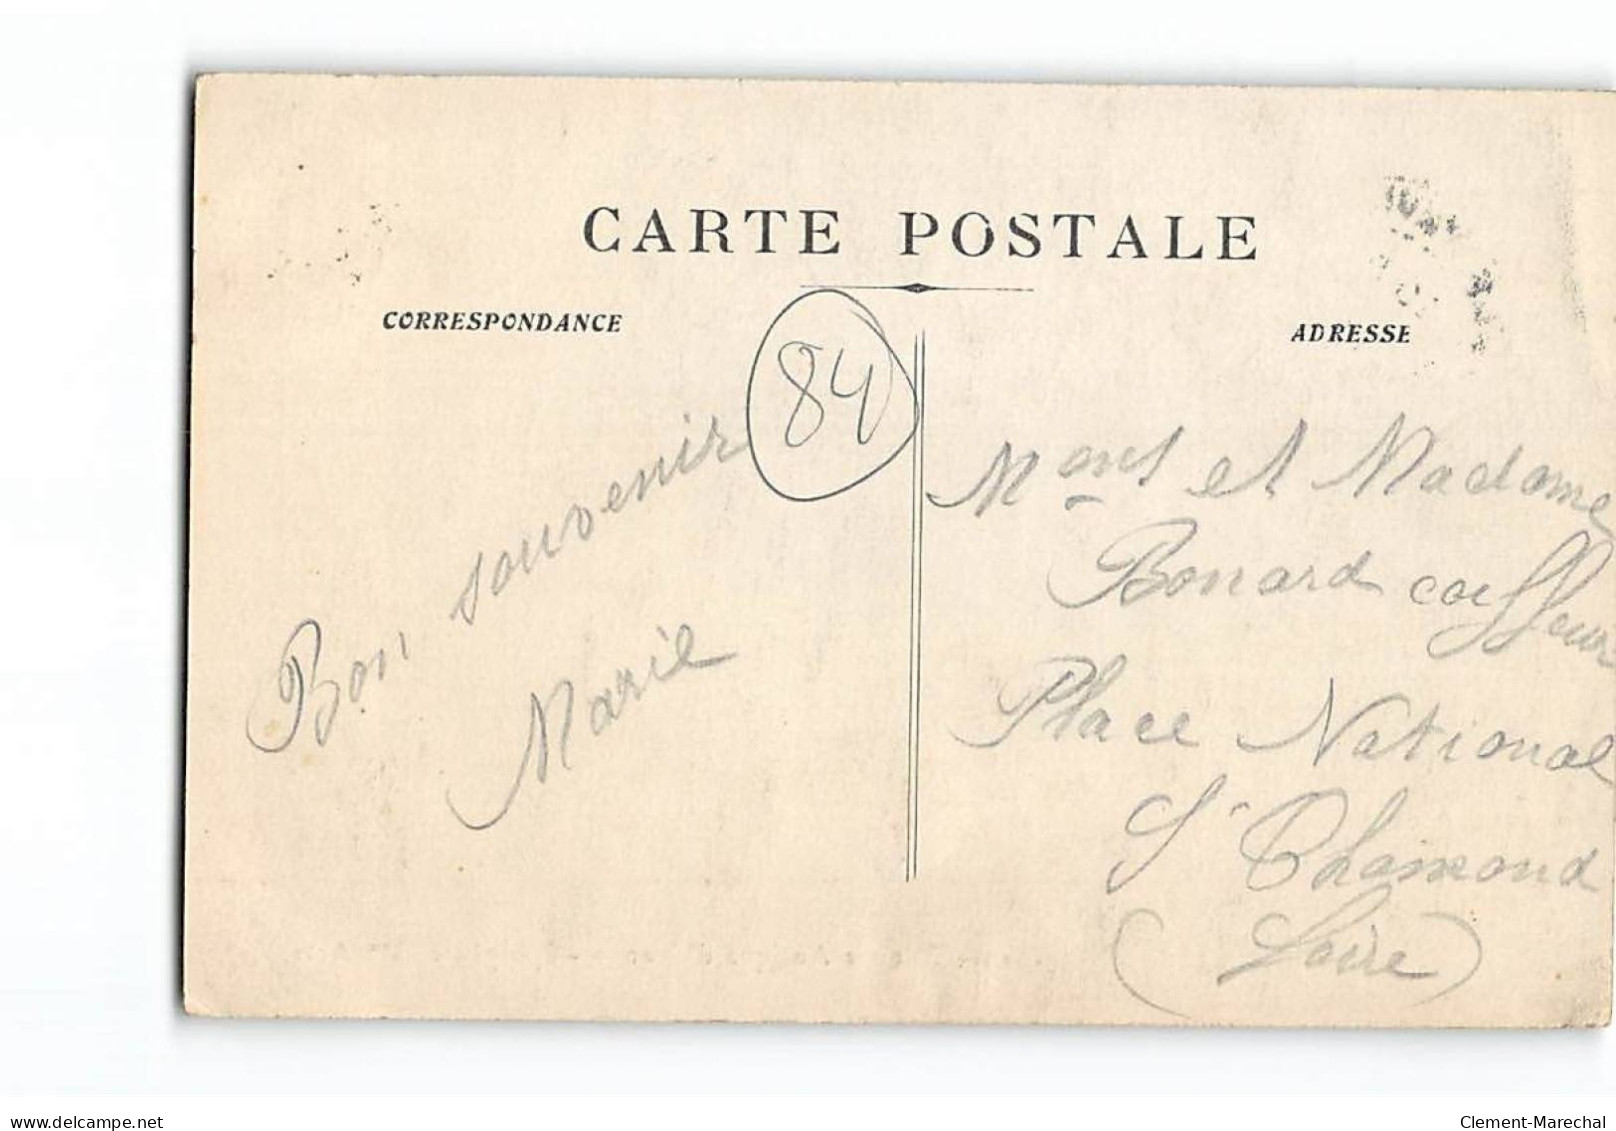 CARTE POSTALE
CORRESPONDANCE
ADRESSE
84
Bon souvenir
Marie
Mons et Madame
Bonard coiffeur
Place National
St Chamond
(Loire)
delcampe.net
Clement-Marechal